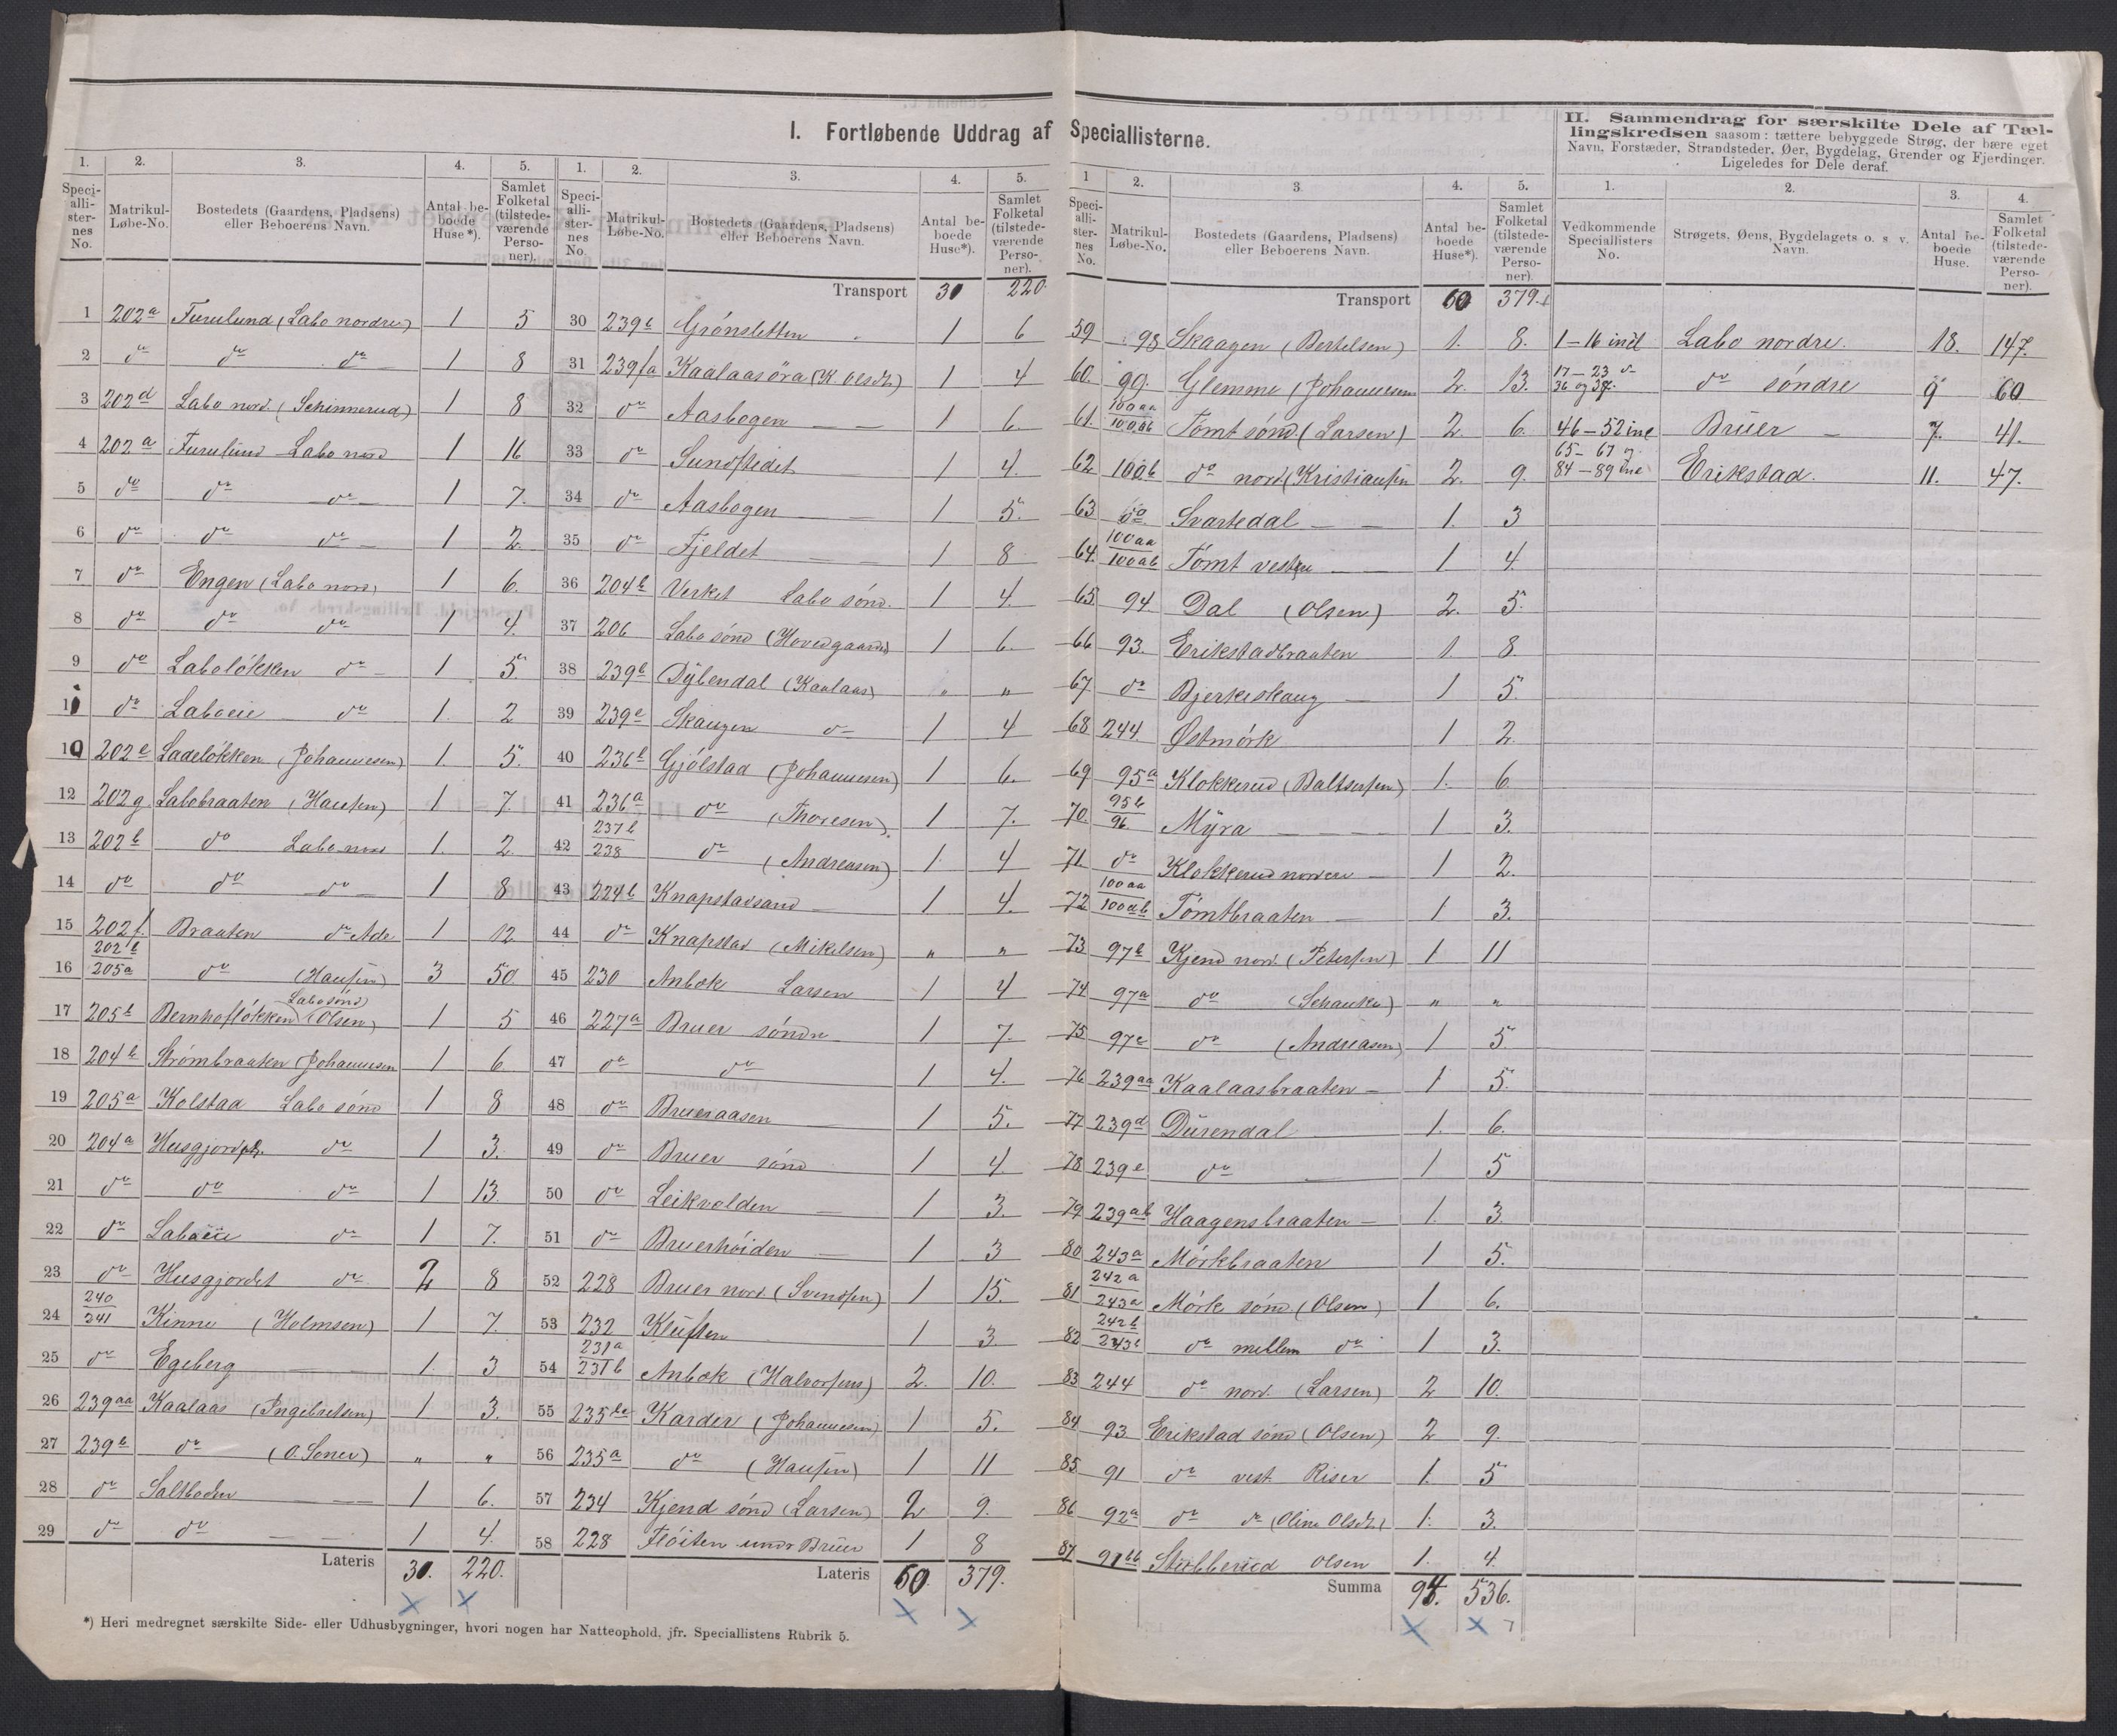 I. Fortløbende Uddrag af Speciallisterne.
II. Sammendrag for særskilte Dele af Tællingskredsen saasom: tættere bebyggede Strøg, der bære eget Navn, Forstæder, Strandsteder, Øer, Bygdelag, Grender og Fjerdinger. Ligeledes for Dele deraf.
1. 2. 3. 4. 5.
Speciallisternes No. | Matrikul-Løbe-No. | Bostedets (Gaardens, Pladsens) eller Beboerens Navn. | Antal beboede Huse*). | Samlet Folketal (tilstedeværende Personer).
1 202a Furulund (Labo nordre) 1 5
2 do do do 1 8
3 202d Labo nord. (Schinnerud) 1 8
4 202a Furulund Labo nord 1 16
5 do do do 1 7.
6 do do do 1 2.
7 do Engen (Labo nord) 1 6.
8 do do do 1 4.
9 do Labolökken do 1 5.
11 do Laboeie do 1. 2
10 202e Ladelökken (Johannesen) 1 5.
12 202g Labobraaten (Hansen) 1 7.
13 202b do Labo nord 1. 2
14 do do do 1 8
15 202f. Braaten do 1 12
16 202b/205a do (Hansen) 3 50
17 205b Bernhoflökken (Olsen) Labo sönd 1 5
18 204b Strömbraaten (Johannesen 1 6
19 205a Kolstad Labo sönd 1 8
20 204a Husgjordet do 1 3.
21 do do do 1 13.
22 do Laboeie do 1 7.
23 do Husgjordet do 2 8
24 240/241 Kinne (Holmsen) 1 7.
25 do Egeberg 1. 3
26 239aa Kaalaas (Ingebretsen) 1 3.
27 239b do (O. Soner) " "
28 do Saltboden 1 6.
29 do do 1 4.
Lateris 30. 220.
1. 2. 3. 4. 5.
Speciallisternes No. | Matrikul-Løbe-No. | Bostedets (Gaardens, Pladsens) eller Beboerens Navn. | Antal beboede Huse*). | Samlet Folketal (tilstedeværende Personer).
Transport 30 220
30 239b Grönsletten 1 6
31 239fa Kaalaasöra (K. Olsdt.) 1 4
32 do Aasbogen 1 6
33 do Sundstedet 1 4.
34 do Aasbogen 1 5.
35 do Fjeldet 1 8
36 204b Verket Labo sönd. 1 4.
37 206 Labo sönd (Hovedgaard) 1 6.
38 239b Dÿbendal (Kaalaas) " "
39 239e Skaugen do 1 4
40 236b Gjölstad (Johannesen) 1 6.
41 236a do (Thoresen). 1 7.
42 237b/238 do (Andreasen) 1. 4
43 224b Knapstadsand 1 4.
44 do Knapstad (Mikelsen) " "
45 230 Anbæk Larsen 1 4
46 227a Bruer söndre 1 7.
47 do do 1 4.
48 do Brueraasen 1 5.
49 do Bruer sönd 1 4
50 do Leikvolden 1 3.
51 do Bruerhöiden 1 3
52 228 Bruer nord. (Svendsen) 1 15.
53 232 Kluften 1 3.
54 231a/231b Anbæk (Halvorsen) 2. 10.
55 235b Karder (Johannesen) 1 5.
56 235a do (Hansen) 1 11
57 234 Kjend sönd (Larsen) 2 9.
58 228 Flöiten under Brüer 1 8
Lateris 60. 379.
1 2. 3. 4. 5.
Speciallisternes No. | Matrikul-Løbe-No. | Bostedets (Gaardens, Pladsens) eller Beboerens Navn. | Antal beboede Huse*). | Samlet Folketal (tilstedeværende Personer).
Transport 60 379.
59 98 Skaagen (Bertelsen) 1. 8.
60. 99. Glemme (Johannesen 2. 13.
61. 100aa/100ab Tömt sönd (Larsen) 2. 6.
62 100b do nord. (Kristiansen 2. 9.
63 do Svartedal 1. 3
64. 100aa/100ab Tömt vestre 1 4.
65 94 Dal (Olsen) 2. 5.
66 93. Erikstadbraaten 1. 8.
67 do Bjerkeskaug 1 5.
68 244. Østmörk 1 2.
69 95a Klokkerud (Baltsersen) 1. 6
70. 95b/96. Mÿra 1 3.
71. do Klokkerud nordre 1 2.
72 100aa/100ab Tömtbraaten 1 3.
73 97b Kjend nord. (Petersen) 1 11
74 97a do (Schanke) " "
75 97c do (Andreasen) 1 5
76 239aa Kaalaasbraaten 1 5.
77 239d Dürendal 1. 6.
78 239e do 1 5
79 239ab Haagensbraaten 1. 3
80 243a Mörkbraaten 1 5.
81 242a/243a Mörk sönd (Olsen) 1 6.
82 242b/243b do mellem do 1 3.
83 244 do nord. (Larsen) 2 10.
84 93 Erikstad sönd (Olsen) 2 9.
85 91 do vest Riser 1. 5
86 92a do do (Oline Olsdt.) 1. 3.
87 Stubberud Olsen 1. 4.
Summa 94. 536.
1. 2. 3. 4.
Vedkommende Speciallisters No. | Strøgets, Øens, Bygdelagets o. s. v. Navn. | Antal beboede Huse. | Samlet Folketal (tilstedeværende Personer).
1–16 incl Labo nordre. 18. 147.
17–23 36 og 37. do söndre 9 60
46–52 inc Brüer 7. 41.
65–67 og 84–89 inc Erikstad. 11. 47.
*) Heri medregnet særskilte Side- eller Udhusbygninger, hvori nogen har Natteophold, jfr. Speciallistens Rubrik 5.